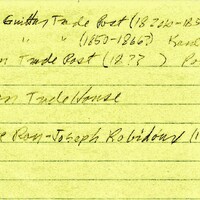 Guittar Trade Post (1820s-185
" " (1850-1866) Kand
n Trade Post (18?? ) Po
on Trade House
e Roy-Joseph Robidoux (1